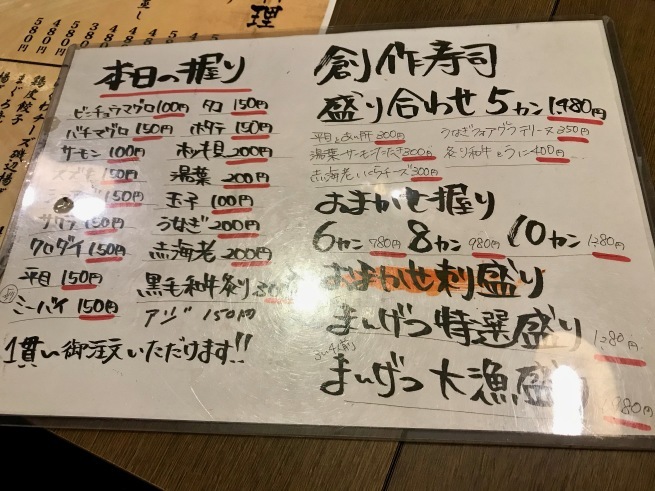 理
580円
580円
480円
480円
鶏皮餃子
本日の握り
ビンチョウマグロ100円 タコ 150円
バチマグロ 150円 ホタテ 150円
サーモン 100円 ホッキ貝 200円
スズキ 150円 湯葉 200円
150円 玉子 100円
サワラ 150円 うなぎ 200円
クロダイ 150円 赤海老 200円
平目 150円 黒毛和牛炙り
ミーバイ 150円 アジ 150円
1貫い御注いただけます!!
創作寿司
盛り合わせ 5カン 1480円
平目とあん肝 300円 うなぎフォアグラテリーヌ 350円
湯葉サーモンたたき 300円 炙り和牛とうに 400円
赤海老いくらチーズ 300円
おまかせ握り
6カン 780円 8カン 980円 10カン 1280円
おまかせ刺盛り
まんげつ特選盛り 1280円
まんげつ大漁盛り